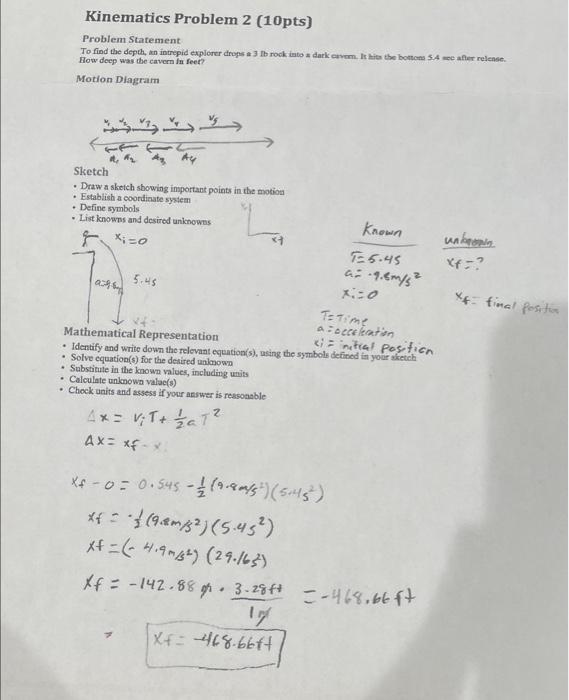 Kinematics Problem 2 (10pts)
Problem Statement
To find the depth, an intrepid explorer drops a 3 lb rock into a dark cavern. It hits the bottom 5.4 sec after release.
How deep was the cavern in feet?
Motion Diagram
v₁ v₂ v₃ v₄ v₅
A₁ A₂ A₃ A₄
Sketch
• Draw a sketch showing important points in the motion
• Establish a coordinate system
• Define symbols
• List knowns and desired unknowns
xi=0
5.4s
xf
Known
T=5.4s
a=-9.8m/s²
xi=0
unknown
xf=?
xf= final position
T=Time
a=acceleration
xi= initial position
Mathematical Representation
• Identify and write down the relevant equation(s), using the symbols defined in your sketch
• Solve equation(s) for the desired unknown
• Substitute in the known values, including units
• Calculate unknown value(s)
• Check units and assess if your answer is reasonable
Δx= viT+ ½aT²
Δx= xf-x
xf-0= 0·5.4s -½(9.8m/s²)(5.4s²)
xf= -½(9.8m/s²)(5.4s²)
xf=(-4.9m/s²)(29.16s²)
xf= -142.88 m · 3.28ft/1m = -468.66ft
xf= -468.66ft